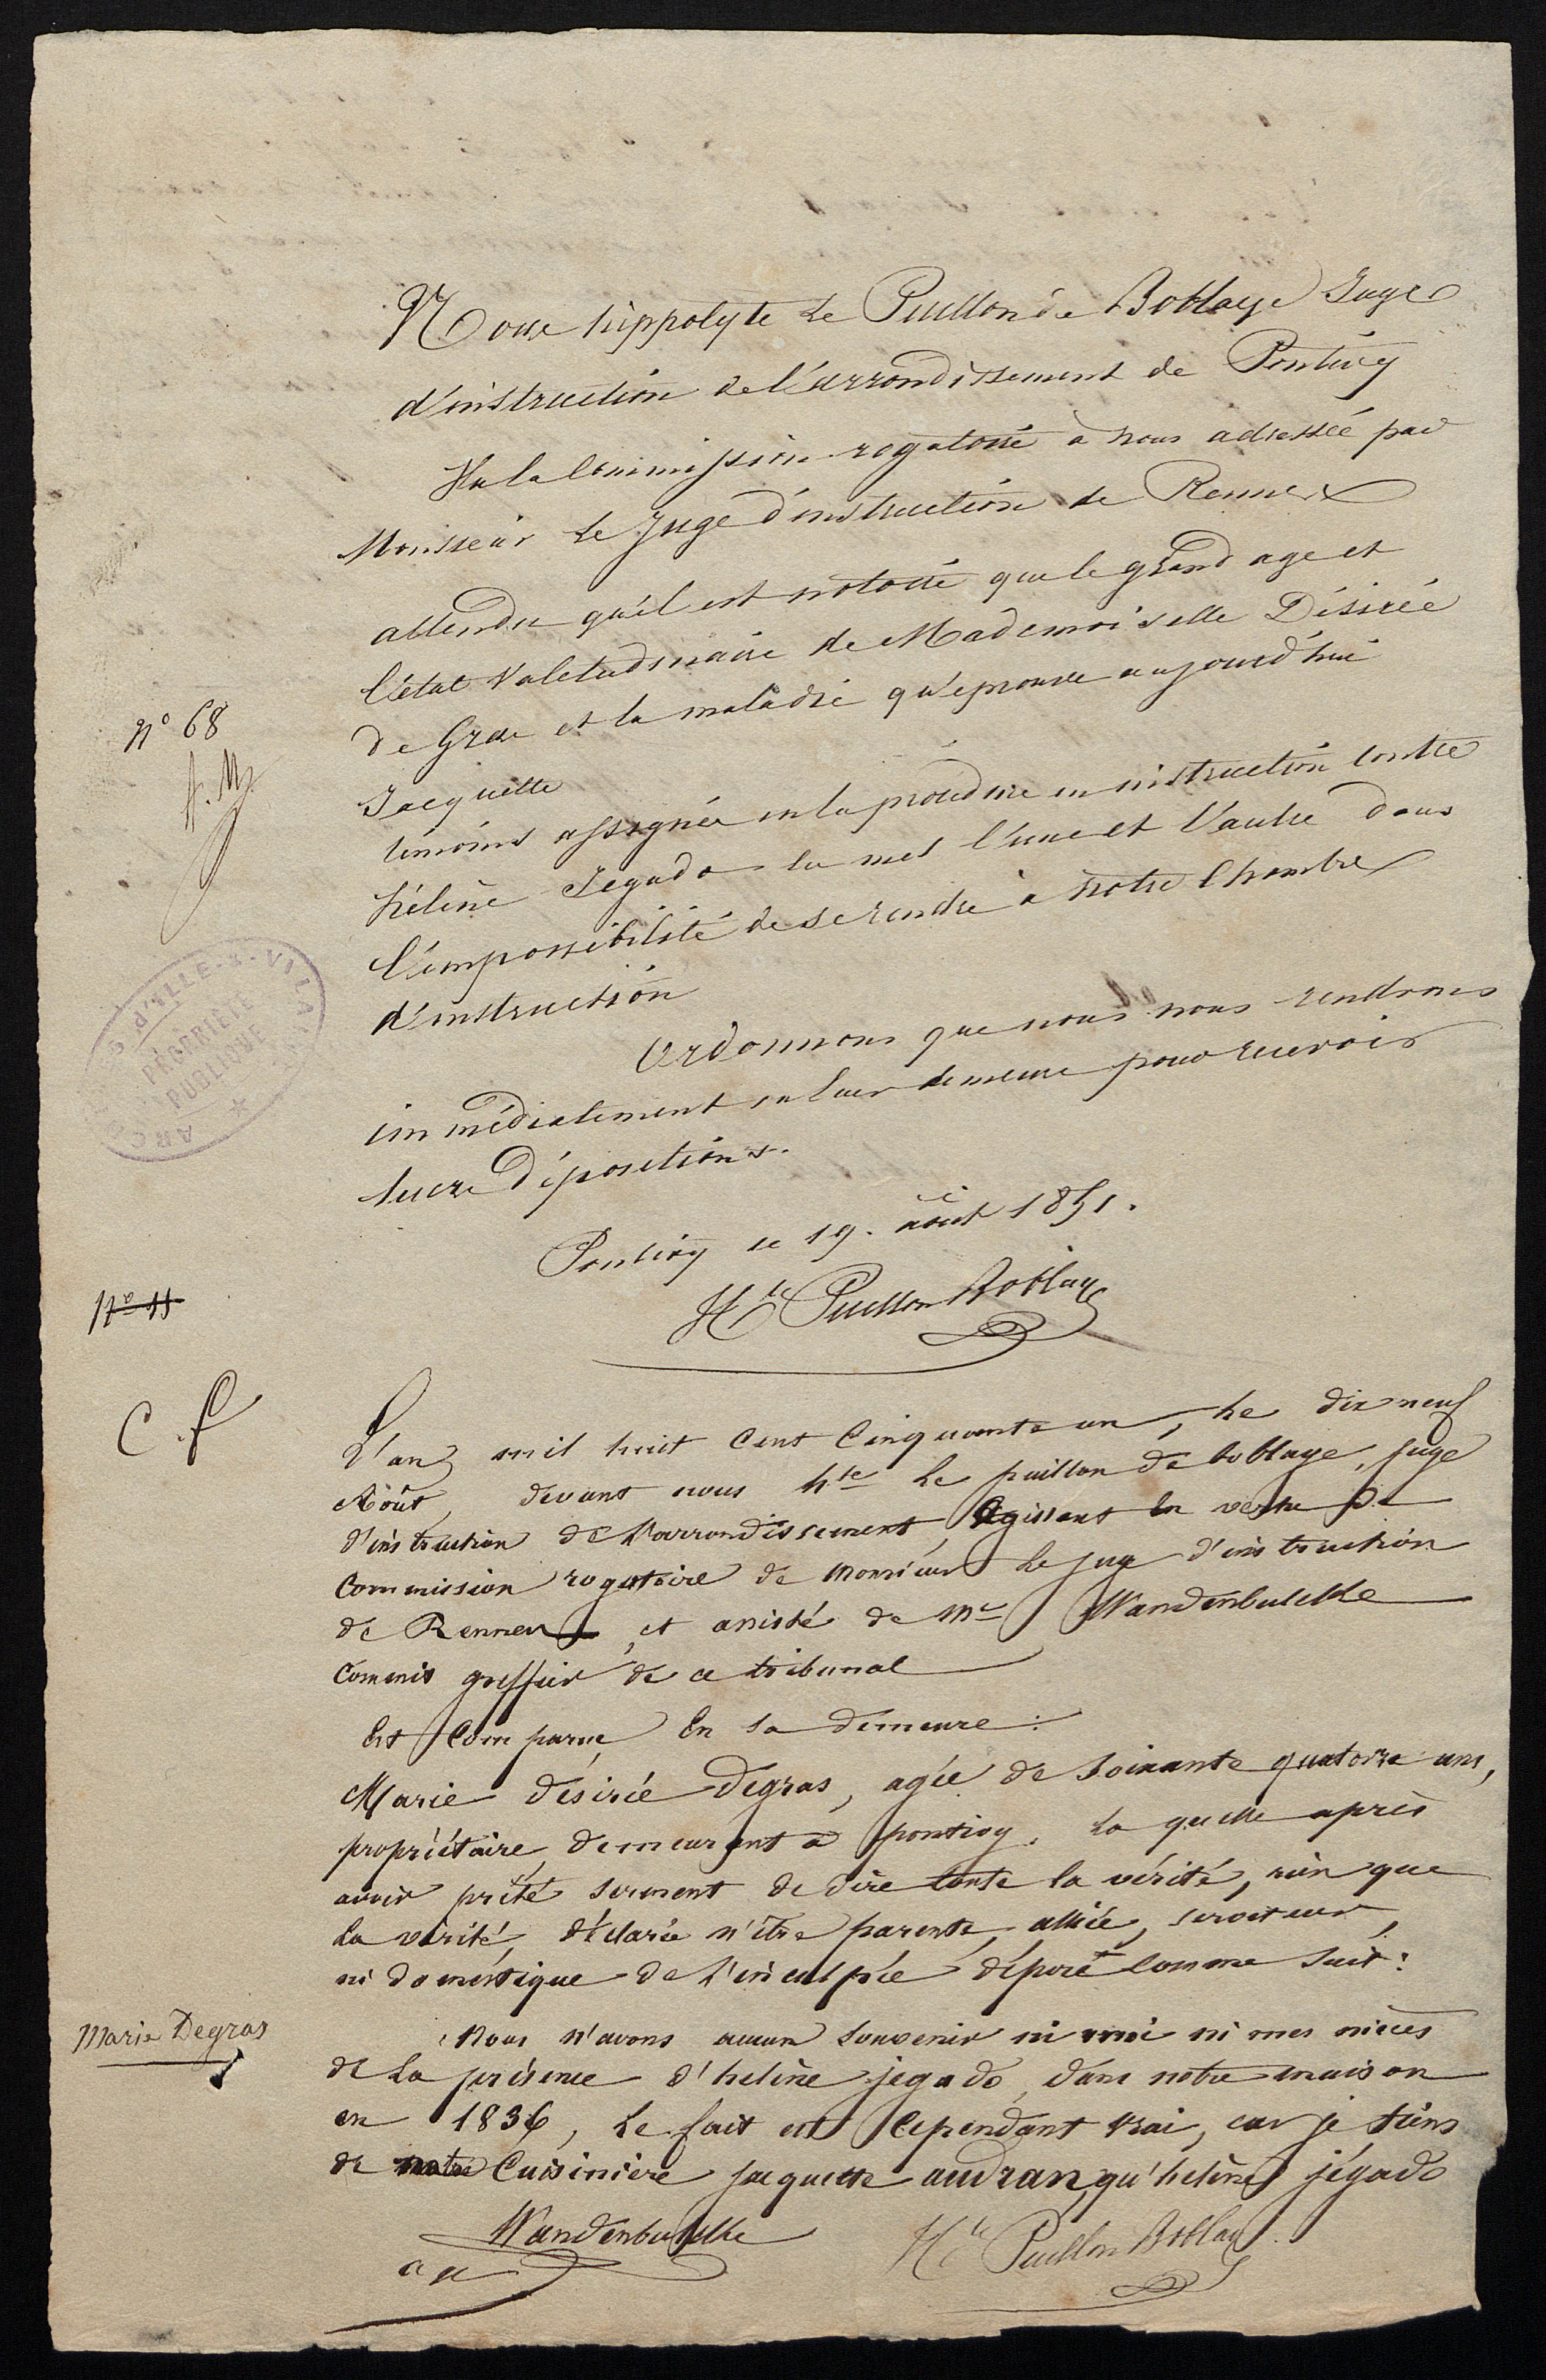 Nous hippolyte Le Puillon de Boblaye Juge
d'instruction de l'arrondissement de Pontivy
Vu la Commission rogatoire à nous adressée par
Monsieur le Juge d'instruction de Rennes
attendu qu'il est notoire que le grand age et
l'état valetudinaire de Mademoiselle Désirée
de Gras et la maladie qu'eprouve aujourd'hui
Jacquette
témoins assignés en la procédure en instruction contre
hélène Jegado la met l'une et l'autre dans
l'impossibilité de se rendre à notre Chambre
d'instruction
Ordonnons que nous nous rendrons
immédiatement en leur demeure pour recevoir
leurs Dépositions.
Pontivy le 19. août 1851.
Hte Puillon Boblaye
N° 68
ARCHIVES D'ILLE-&-VILAINE
PROPRIÉTÉ
PUBLIQUE
N° 11
C. f
L'an mil huit Cent Cinquante un, le dix neuf
Août, devant nous hte Le puillon de boblaye, juge
d'instruction de l'arrondissement, Agissant en vertu de
Commission rogatoire de Monsieur le juge d'instruction
de Rennes, et assisté de Mr Wandenbulcke
Commis greffier de ce tribunal
Est Comparue En sa demeure :
Marie désirée Degras, agée de soixante quatorze ans,
propriétaire demeurant à pontivy. la quelle après
avoir prêté serment de dire toute la vérité, rien que
la vérité, déclarée n'être parente, alliée, serviteur,
ni domestique de l'inculpée dépose comme suit :
Marie Degras
Nous n'avons aucun souvenir ni moi ni mes nièces
de la présence d'helène jegado, dans notre maison
en 1836, le fait est Cependant vrai, car je tiens
de notre Cuisinière jacquette audran, qu'helène jégado
Wandenbulcke
Hte Puillon Boblaye